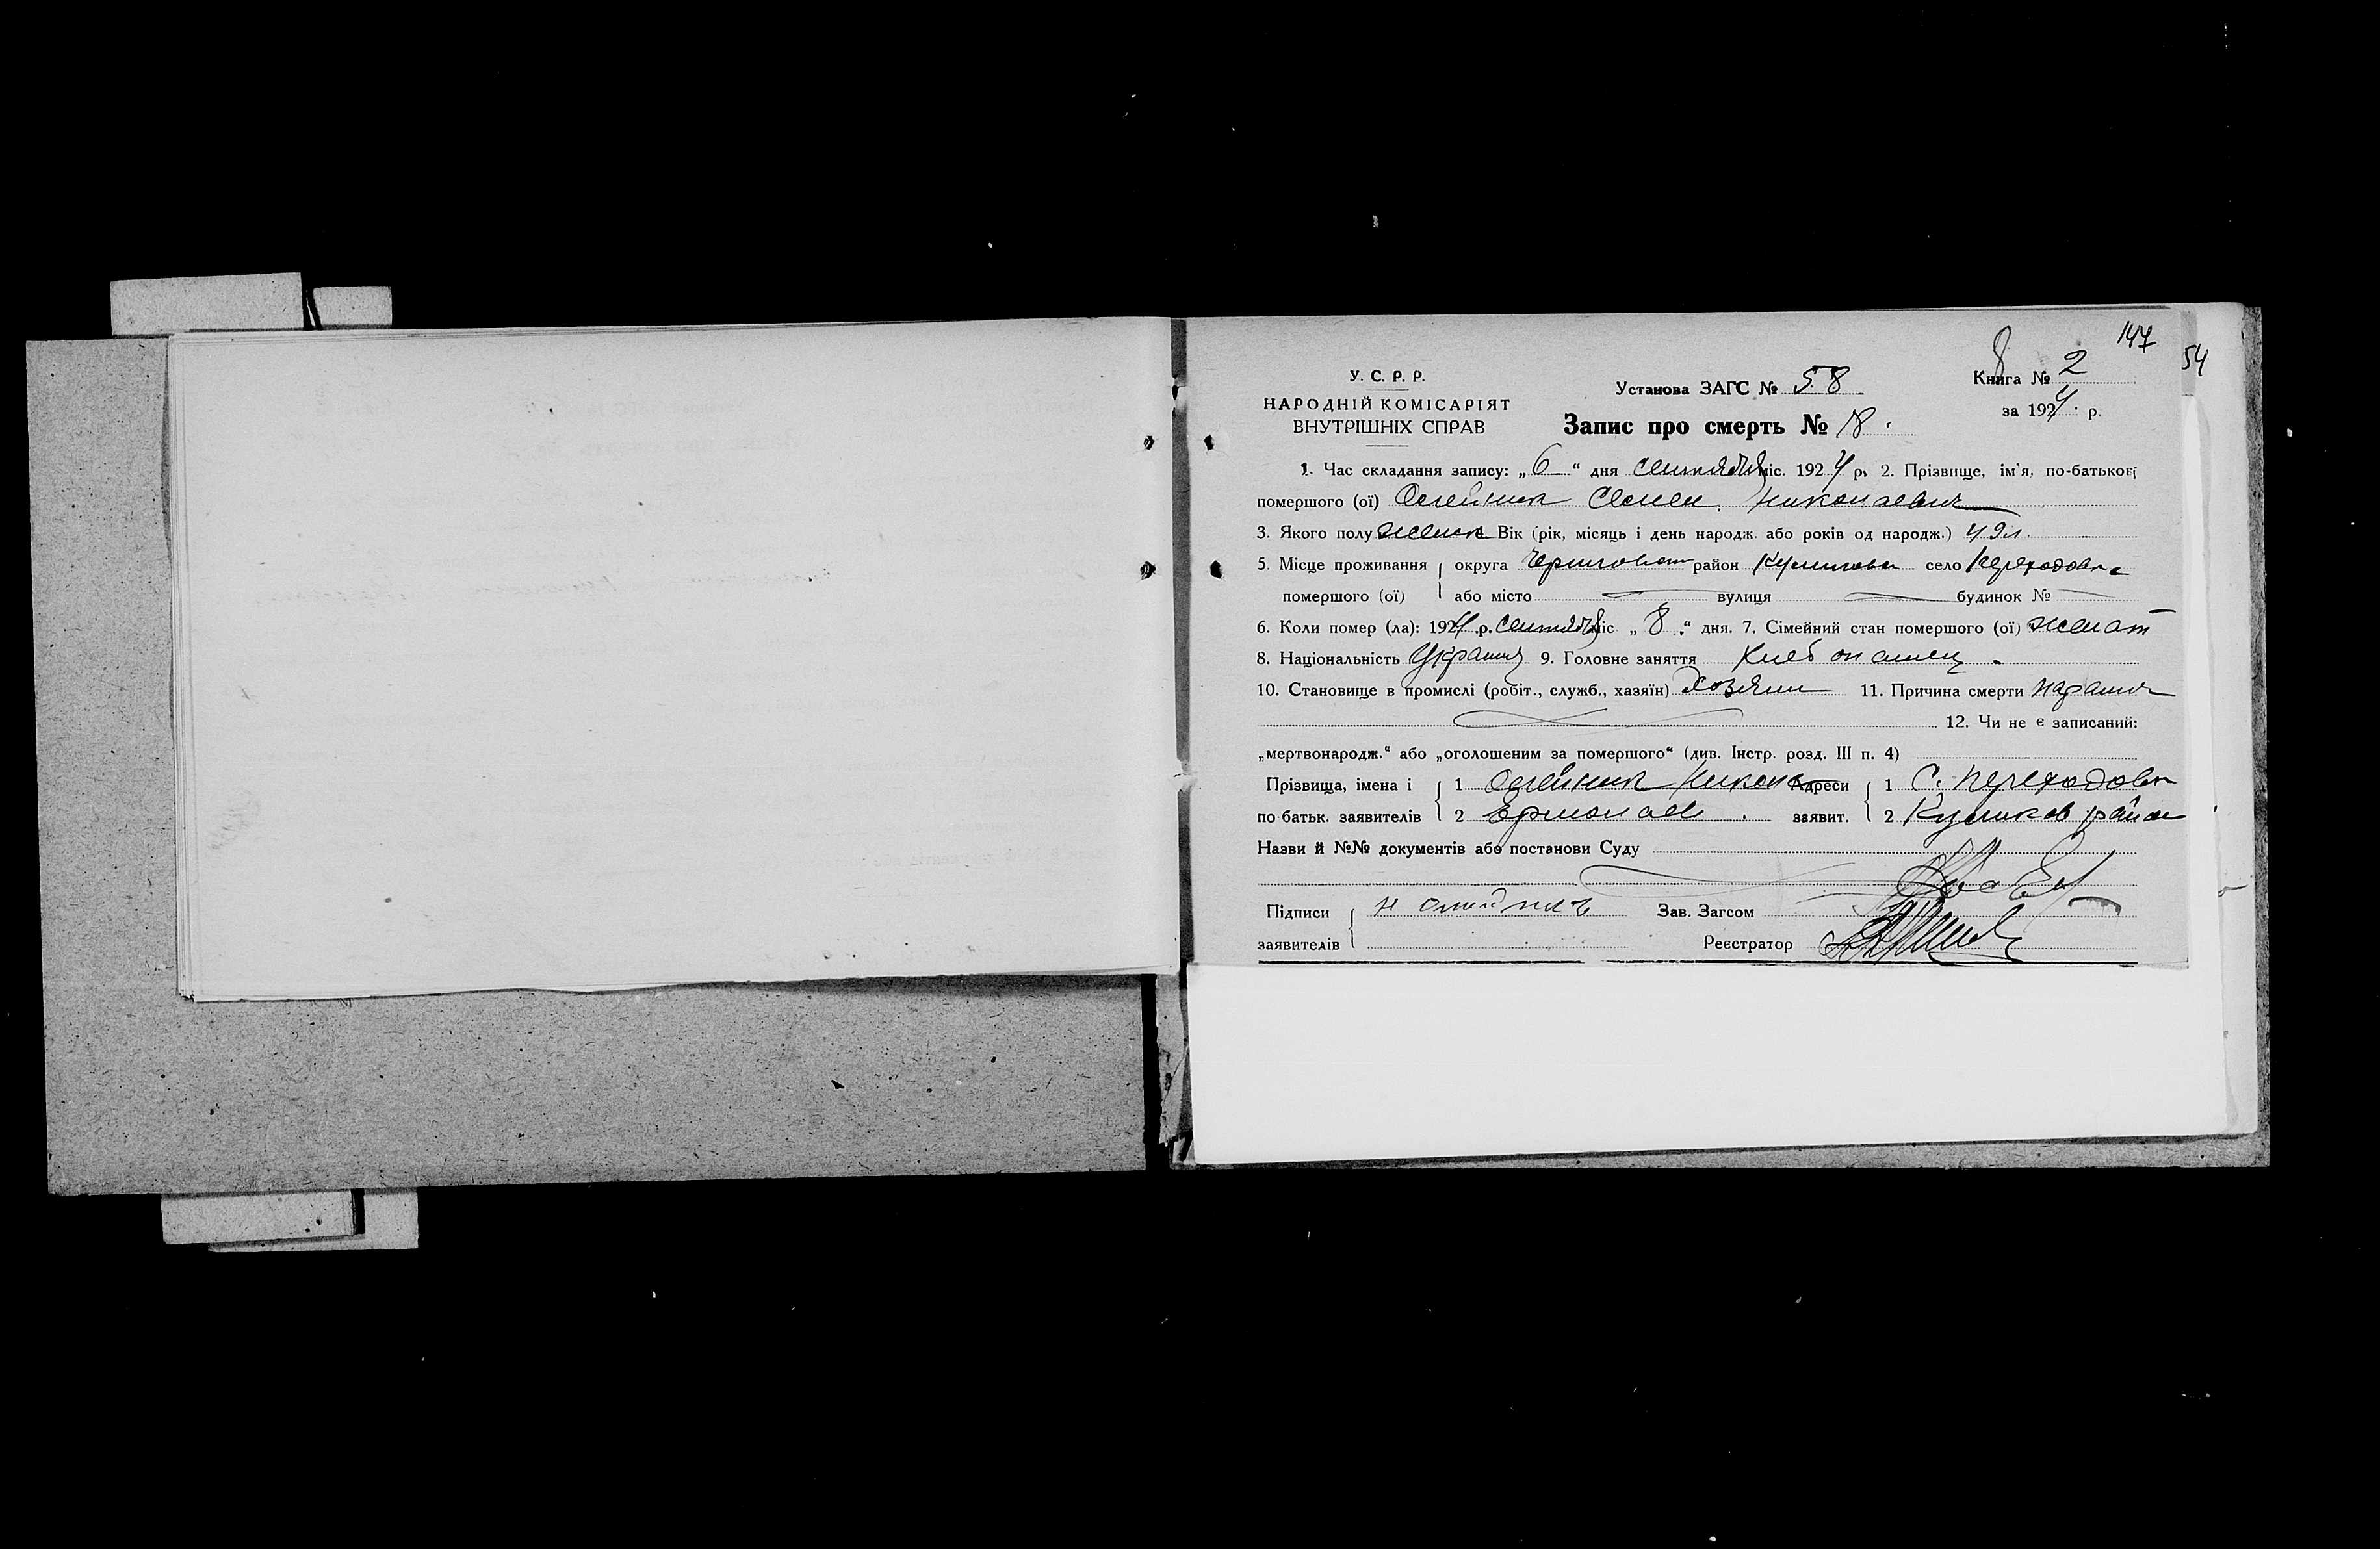 147
54
У. С. Р. Р.
НАРОДНІЙ КОМІСАРІЯТ
ВНУТРІШНІХ СПРАВ
Установа ЗАГС № 58
8
Книга № 2
за 1924 р.
Запис про смерть № 18.
1. Час складання запису: „6“ дня сентября міс. 1924 р. 2. Прізвище, ім'я, по-батькові
помершого (ої) Олейник Семен Николаевич
3. Якого полу женск Вік (рік, місяць і день народж. або років од народж.) 49 л.
5. Місце проживання округа Черниговск район Куликовск село Переходовка
помершого (ої) або місто вулиця будинок №
6. Коли помер (ла): 1924 р. сентября міс „8“ дня. 7. Сімейний стан помершого (ої) женат
8. Національність Украин 9. Головне заняття Хлебопашец
10. Становище в промислі (робіт., служб., хазяїн) Хозяин 11. Причина смерти
12. Чи не є записаний:
„мертвонародж.“ або „оголошеним за помершого“ (див. Інстр. розд. III п. 4)
Прізвища, імена і 1 Олейник Никол Адреси 1 С. Переходовк
по-батьк. заявителів 2 заявит. 2 Куликов район
Назви й №№ документів або постанови Суду
Підписи Н Зав. Загсом
заявителів Реєстратор